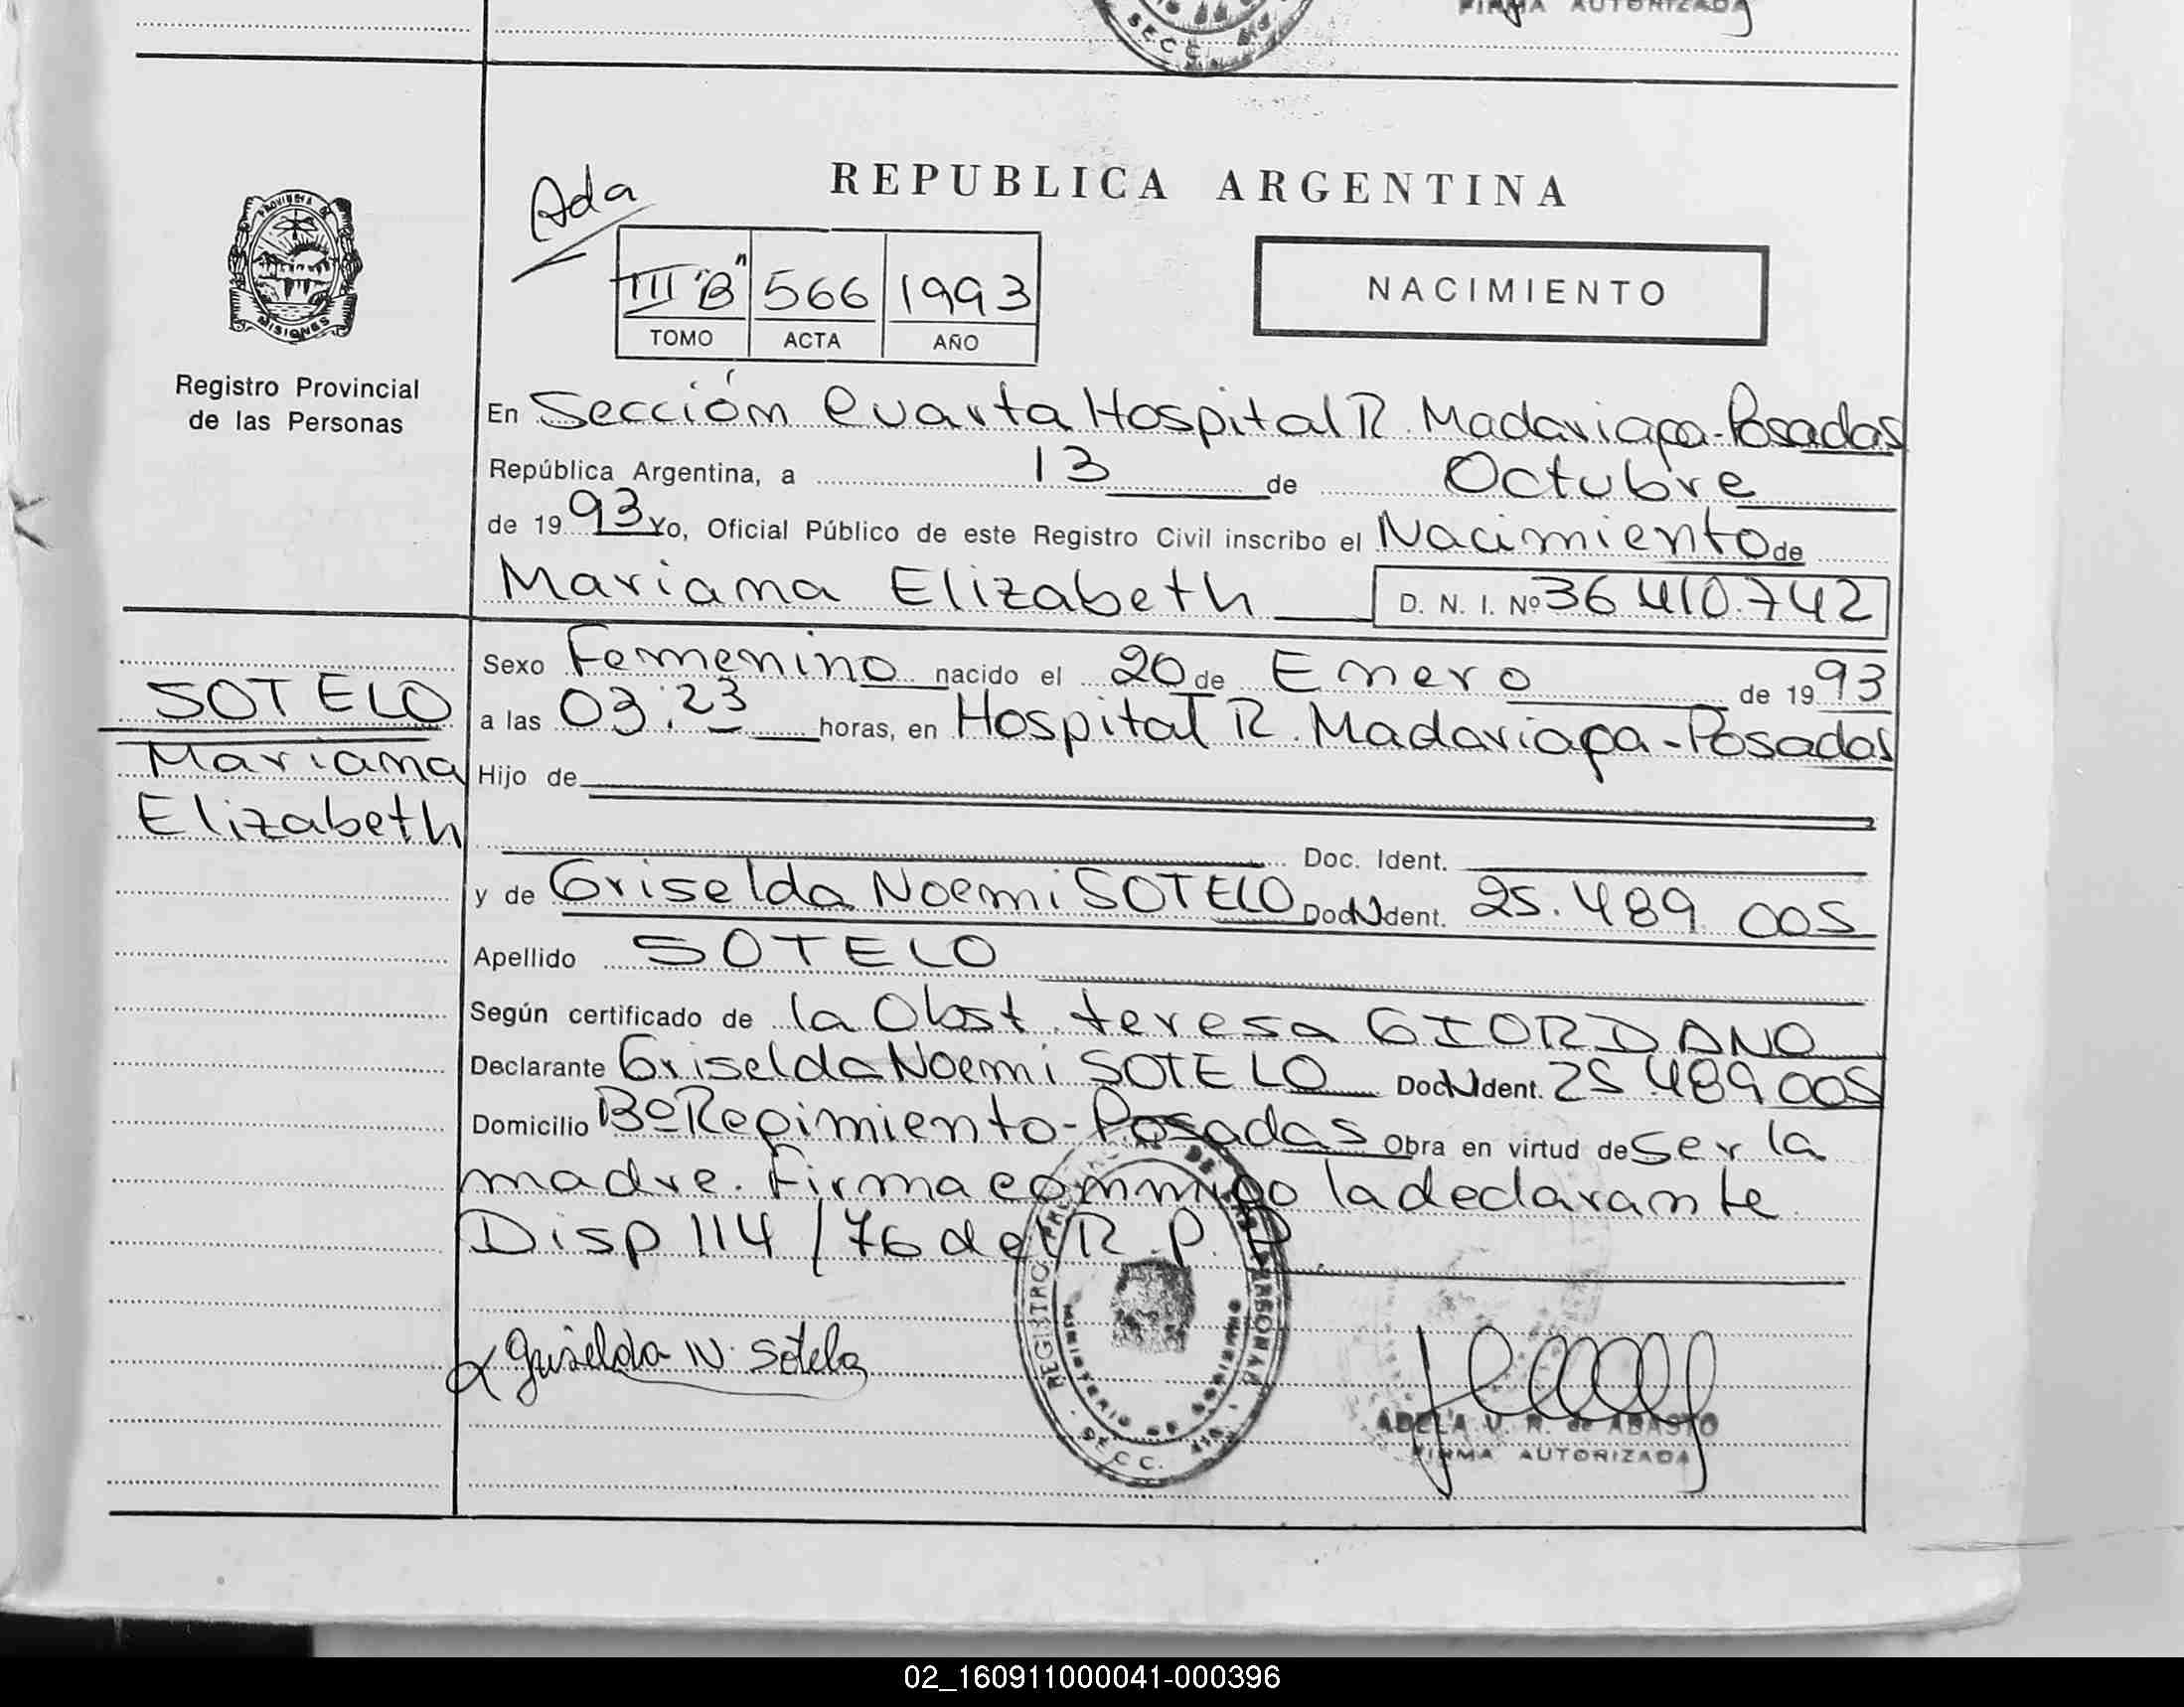 FIRMA AUTORIZADA
SECC.
Ada
REPUBLICA ARGENTINA
PROVINCIA DE
MISIONES
III "B" 566 1993
TOMO ACTA AÑO
NACIMIENTO
Registro Provincial
de las Personas
En Sección Cuarta Hospital R. Madariaga-Posadas
República Argentina, a 13 de Octubre
de 1993 Yo, Oficial Público de este Registro Civil inscribo el Nacimiento de
Mariana Elizabeth D. N. I. Nº 36 410.742
Sexo Femenino nacido el 20 de Enero de 1993
SOTELO
Mariana
Elizabeth
a las 03:23 horas, en Hospital R. Madariaga-Posadas
Hijo de
Doc. Ident.
y de Griselda Noemi SOTELO Doc. Ident. 25.489 005
Apellido SOTELO
Según certificado de la Obst. teresa GIORDANO
Declarante Griselda Noemi SOTELO Doc. Ident. 25.489 005
Domicilio Bº Regimiento-Posadas Obra en virtud de ser la
madre. Firma conmigo la declarante
Disp 114/76 del R P. P.
Griselda N. Sotelo
REGISTRO DE LAS PERSONAS
MINISTERIO DE GOBIERNO
SECC.
ADELA V. R. de ABASTO
FIRMA AUTORIZADA
02_160911000041-000396